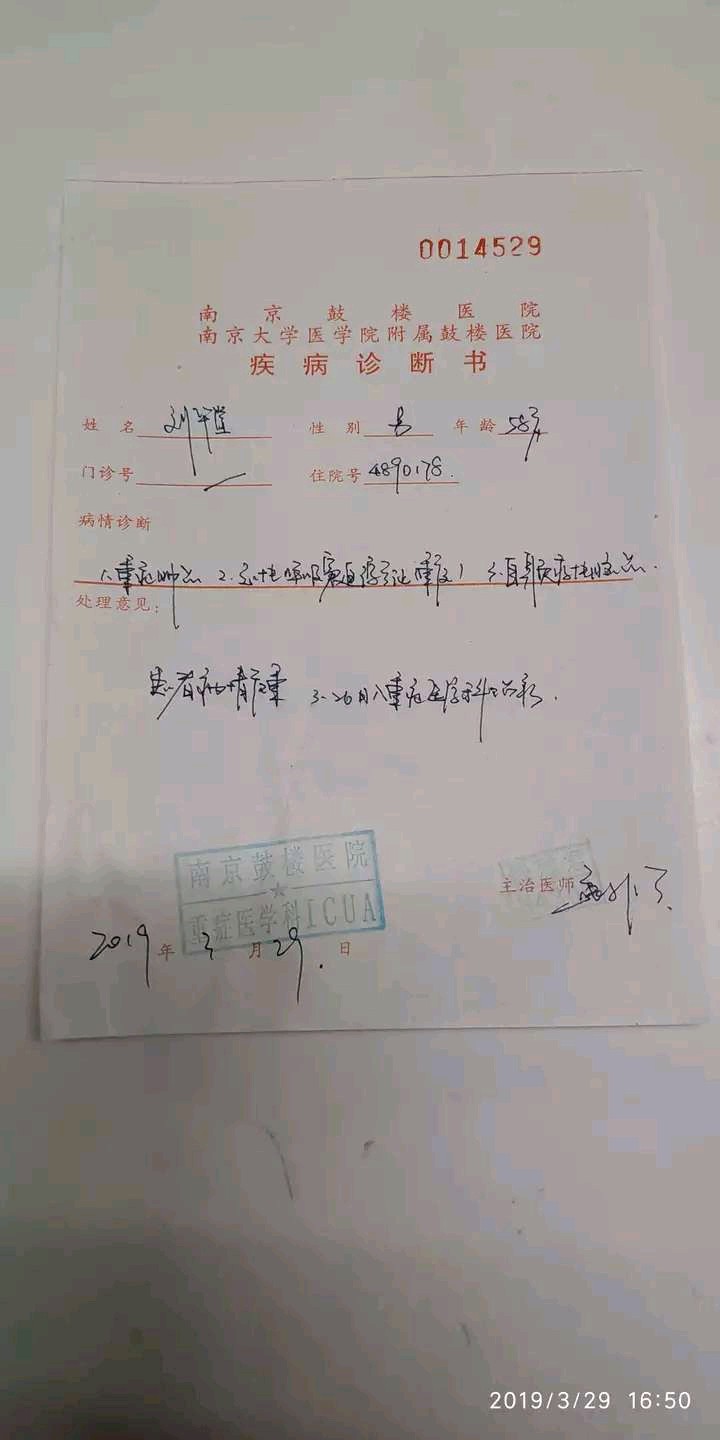 0014529
南京鼓楼医院
南京大学医学院附属鼓楼医院
疾病诊断书
姓名 刘 性别 男 年龄 58岁
门诊号 住院号 4890178.
病情诊断
1.重症肺炎 2.急性呼吸窘迫综合征(重度) 3.
处理意见:
患者病情危重 3.26日入重症医学科治疗.
南京鼓楼医院
重症医学科ICUA
主治医师
2019年3月29.日
2019/3/29 16:50